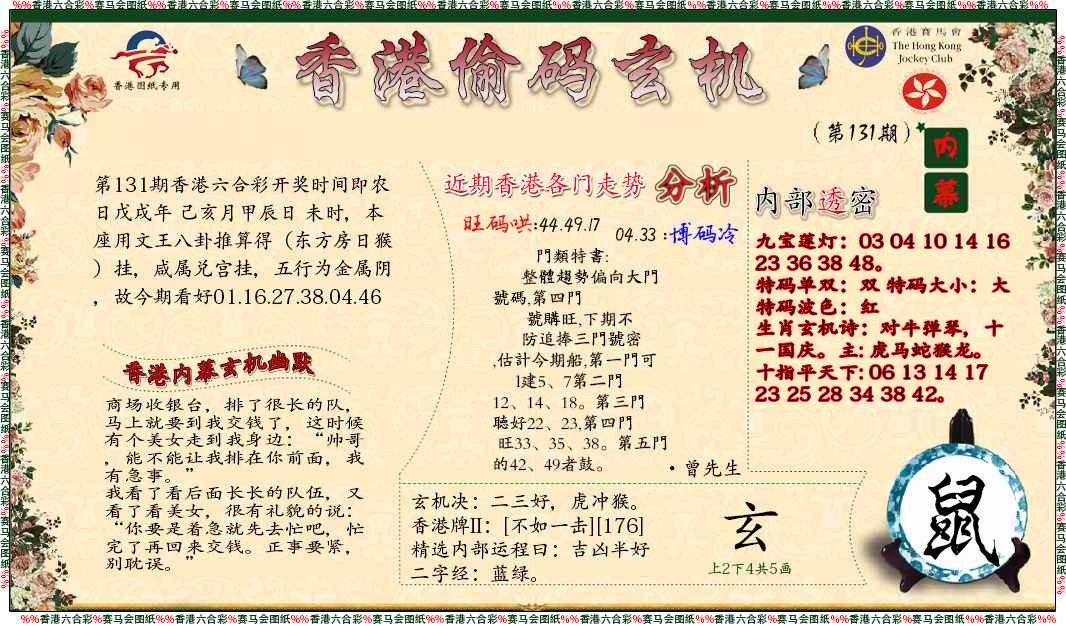 %%香港六合彩%赛马会图纸%%香港六合彩%赛马会图纸%%香港六合彩%赛马会图纸%%香港六合彩%赛马会图纸%%香港六合彩%赛马会图纸%%香港六合彩%赛马会图纸%%香港六合彩%%
香港图纸专用
香港偷码玄机
香港賽馬會
The Hong Kong
Jockey Club
（第131期）
内
幕
第131期香港六合彩开奖时间即农
日戊戌年 己亥月甲辰日 未时，本
座用文王八卦推算得（东方房日猴
）挂，咸属兑宫挂，五行为金属阴
，故今期看好01.16.27.38.04.46
香港内幕玄机幽默
商场收银台，排了很长的队，
马上就要到我交钱了，这时候
有个美女走到我身边：“帅哥
，能不能让我排在你前面，我
有急事。”
我看了看后面长长的队伍，又
看了看美女，很有礼貌的说：
“你要是着急就先去忙吧，忙
完了再回来交钱。正事要紧，
别耽误。”
近期香港各门走势 分析
旺码哄:44.49.17
04.33 :博码冷
門類特書:
整體趨勢偏向大門
號碼,第四門
號購旺,下期不
防追捧三門號密
,估計今期船,第一門可
l建5、7第二門
12、14、18。第三門
聽好22、23,第四門
旺33、35、38。第五門
的42、49者鼓。
·曾先生
内部透密
九宝莲灯：03 04 10 14 16
23 36 38 48。
特码单双：双 特码大小：大
特码波色：红
生肖玄机诗：对牛弹琴，十
一国庆。主: 虎马蛇猴龙。
十指平天下: 06 13 14 17
23 25 28 34 38 42。
玄机决：二三好，虎冲猴。
香港牌II：[不如一击][176]
精选内部运程曰：吉凶半好
二字经：蓝绿。
玄
上2下4共5画
鼠
%%香港六合彩%赛马会图纸%%香港六合彩%赛马会图纸%%香港六合彩%赛马会图纸%%香港六合彩%赛马会图纸%%香港六合彩%赛马会图纸%%香港六合彩%赛马会图纸%%香港六合彩%%